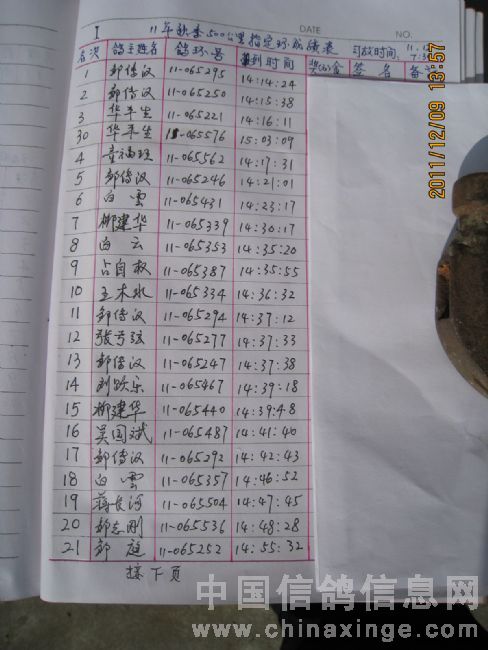 I 11年秋季500公里指定环成绩表 DATE NO.
司放时间: 11.12.
7:3
名次 鸽主姓名 鸽环号 报到时间 奖(¥)金 签名 备
1 邹传汉 11-065295 14:14:24
2 邹传汉 11-065250 14:15:38
3 华平生 11-065221 14:16:11
30 华平生 11-065576 15:03:09
4 章福强 11-065562 14:17:31
5 邹传汉 11-065246 14:21:01
6 白雪 11-065431 14:23:17
7 柳建华 11-065339 14:30:17
8 白云 11-065353 14:35:20
9 占自权 11-065387 14:35:55
10 王木水 11-065334 14:36:32
11 邹传汉 11-065294 14:37:12
12 张弓弦 11-065277 14:37:33
13 邹传汉 11-065247 14:37:38
14 刘跃乐 11-065467 14:39:18
15 柳建华 11-065440 14:39:48
16 吴国斌 11-065487 14:41:40
17 邹传汉 11-065292 14:42:43
18 白雪 11-065357 14:46:52
19 蒋长河 11-065504 14:47:45
20 邹志刚 11-065536 14:48:28
21 邹庭 11-065252 14:55:32
接下页
2011/12/09 13:57
中国信鸽信息网
www.chinaxinge.com